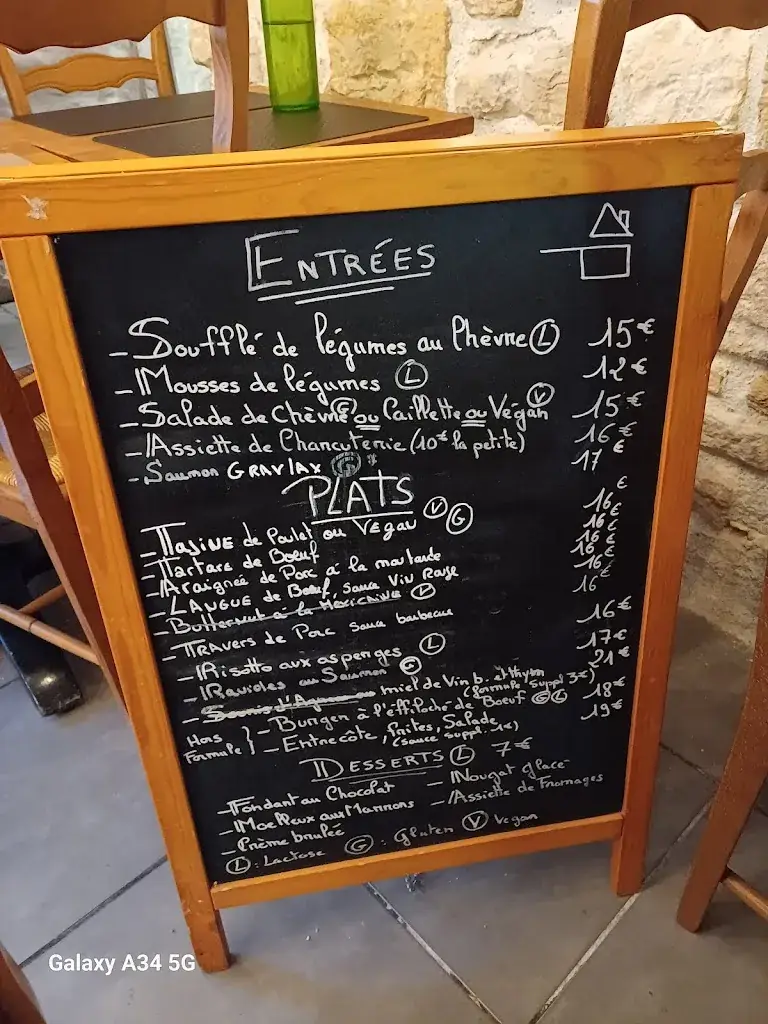 ENTRÉES
- Soufflé de légumes au Chèvre Ⓛ 15€
- Mousses de légumes Ⓛ 12€
- Salade de Chèvre ou Caillette ou Végan Ⓥ 15€
- Assiette de Charcuterie (10€ la petite) 16€
- Saumon GRAVLAX Ⓖ 17€
PLATS €
- TAJINE de Poulet ou VEGAN Ⓥ Ⓖ 16€
- Tartare de Boeuf 16€
- Araignée de Porc à la moutarde 16€
- LANGUE de Boeuf, sauce Vin Rouge 16€
- Butternut à la Mexicaine Ⓥ 16€
- TRAVERS de Porc sauce barbecue 16€
- Risotto aux asperges Ⓛ 17€
- Ravioles au Saumon Ⓖ 21€
- Souris d'Agneau au miel de Vin b. et thym (formule suppl 3€)
Hors Formule } - Burger à l'effiloché de Boeuf Ⓖ Ⓛ 18€
- Entrecôte, frites, Salade 19€
(sauce suppl. 1€)
DESSERTS Ⓛ 7€
- Fondant au Chocolat - Nougat glacé
- Moelleux aux Marrons - Assiette de Fromages
- Crème brulée
Ⓛ : Lactose Ⓖ : Gluten Ⓥ Vegan
Galaxy A34 5G